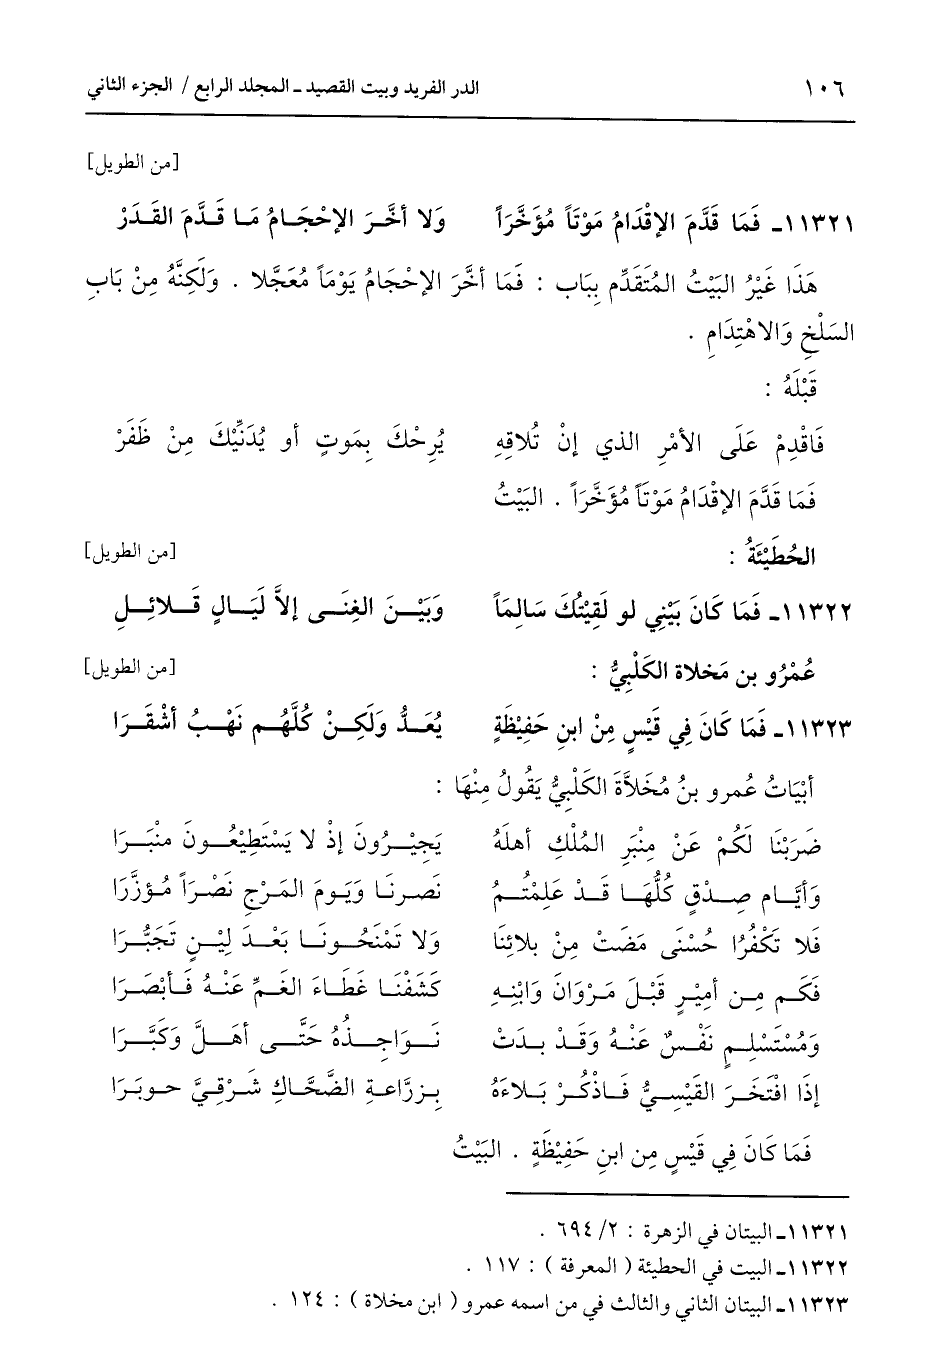 ١٠٦ الدر الفريد وبيت القصيد ـ المجلد الرابع / الجزء الثاني
[من الطويل]
١١٣٢١ـ فَمَا قَدَّمَ الإقْدَامُ مَوْتَاً مُؤَخَّرَاً وَلا أخَّرَ الإحْجَامُ مَا قَدَّمَ القَدَرْ
هَذَا غَيْرُ البَيْتُ المُتَقَدِّم بِبَاب : فَمَا أخَّرَ الإحْجَامُ يَوْمَاً مُعَجَّلا . وَلَكِنَّهُ مِنْ بَابِ
السَلْخِ وَالاهْتِدَامِ .
قَبْلَهُ :
فَاقْدِمْ عَلَى الأمْرِ الذي إنْ تُلاقِهِ يُرِحْكَ بِمَوتٍ أو يُدَنِّيْكَ مِنْ ظَفَرْ
فَمَا قَدَّمَ الإقْدَامُ مَوْتَاً مُؤَخَّرَاً . البَيْتُ
الحُطَيْئَةُ : [من الطويل]
١١٣٢٢ـ فَمَا كَانَ بَيْنِي لو لَقِيْتُكَ سَالِمَاً وَبَيْنَ الغِنَى إلاَّ لَيَالٍ قَلائِلِ
عُمْرُو بن مَخلاة الكَلْبِيُّ : [من الطويل]
١١٣٢٣ـ فَمَا كَانَ فِي قَيْسٍ مِنْ ابنِ حَفِيْظَةٍ يُعَدُّ وَلَكِنْ كُلَّهُم نَهْبُ أشْقَرَا
أبْيَاتُ عُمرو بنُ مُخَلاَّةَ الكَلْبِيُّ يَقُولُ مِنْهَا :
ضَرَبْنَا لَكُمْ عَنْ مِنْبَرِ المُلْكِ أهلَهُ يَجيْرُونَ إذْ لا يَسْتَطِيْعُونَ منْبَرَا
وَأيَّام صِدْقٍ كُلُّهَا قَدْ عَلِمْتُمُ نَصرنَا وَيَومَ المَرْجِ نَصْرَاً مُؤزَّرَا
فَلا تَكْفُرُا حُسْنَى مَضَتْ مِنْ بلائِنَا وَلا تَمْنَحُونَا بَعْدَ لِيْنٍ تَجَبُّرَا
فَكَم مِن أمِيْرٍ قَبْلَ مَرْوَانَ وَابْنِهِ كَشَفْنَا غَطَاءَ الغَمِّ عَنْهُ فَأبْصَرَا
وَمُسْتَسْلِمٍ نَفْسٌ عَنْهُ وَقَدْ بدَتْ نَوَاجِذُهُ حَتَّى أهَلَّ وَكَبَّرَا
إذَا افْتَخَرَ القَيْسِيُّ فَاذْكُرْ بَلاءَهُ بِزرَّاعةِ الضَّحَّاكِ شَرْقِيَّ حوبَرَا
فَمَا كَانَ فِي قَيْسٍ مِن ابنِ حَفِيْظَةٍ . البَيْتُ
١١٣٢١ـ البيتان في الزهرة : ٢/ ٦٩٤ .
١١٣٢٢ـ البيت في الحطيئة ( المعرفة ) : ١١٧ .
١١٣٢٣ـ البيتان الثاني والثالث في من اسمه عمرو ( ابن مخلاة ) : ١٢٤ .